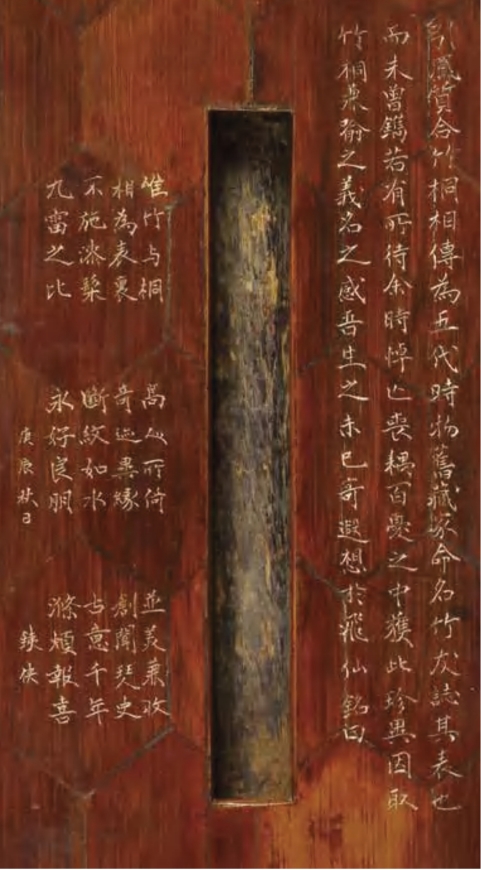 引鳳質合竹桐相傳為五代時物舊藏家命名竹友誌其表也
而未曾鐫若有所待余時悼亡喪耦百憂之中獲此珍異因取
竹桐兼喻之義名之感吾生之未已寄遐想於飛仙銘曰
惟竹与桐 高人所倚 並美兼收
相為表裏 奇迹異緣 創聞琴史
不施漆 斷紋如水 古意千年
九雷之比 永好良朋 滌煩報喜
庚辰秋日 俠